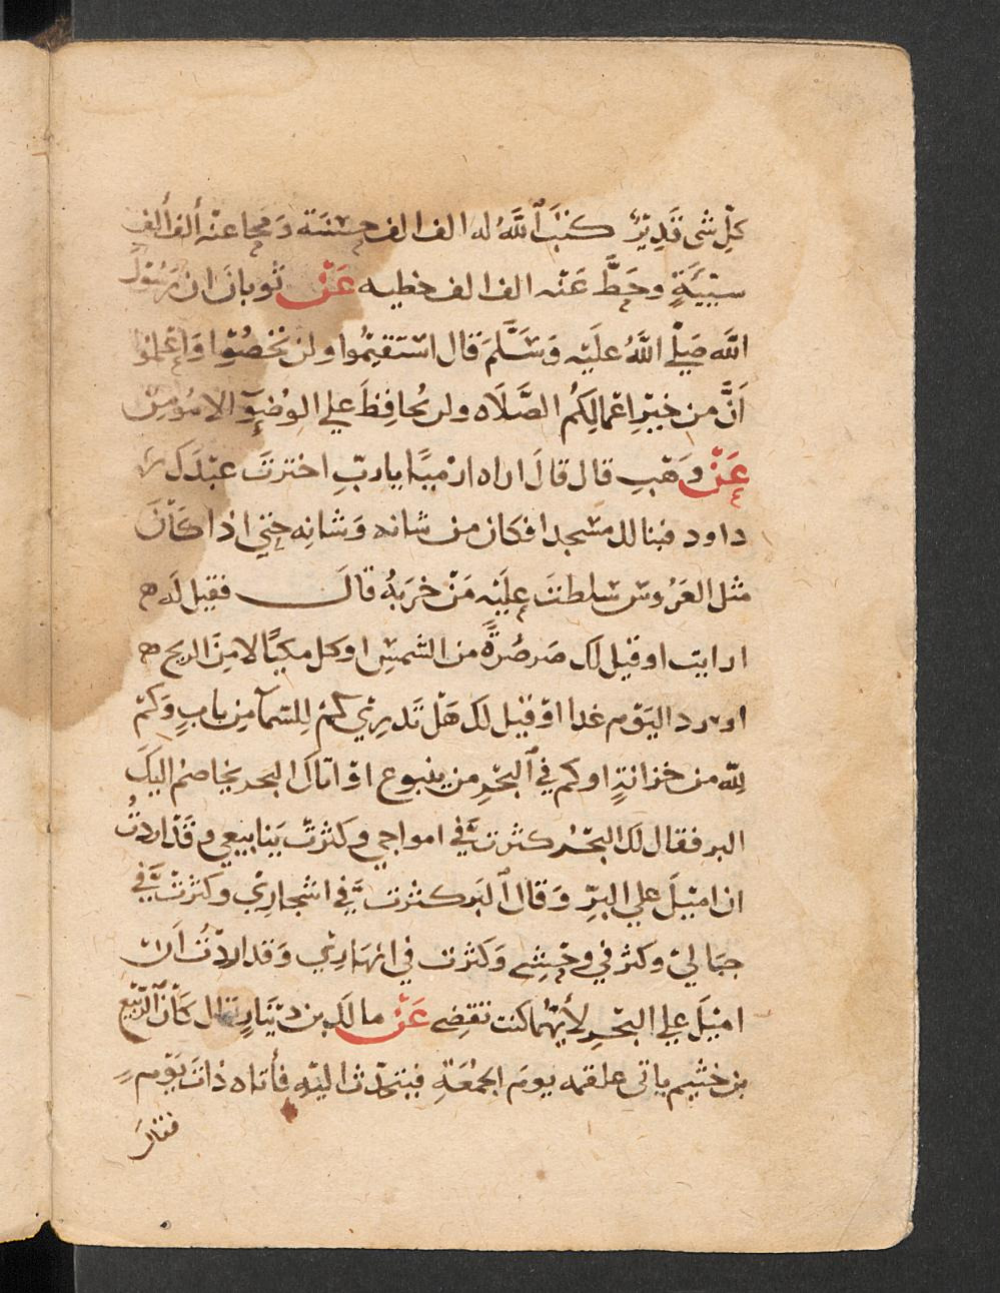 كلِ شى قَدِيْرٌ كتبَ ٱللَّهُ له الف الف حسَنَة وَمَحا عنْه ألف ألف
سيّئَةٍ وحَطَّ عَنْه الف الف خطيه عَنْ ثوبانَ ان رَسُوْلَ
اللَّه صَلّى اللَّهُ علَيْه وَسَلَّمَ قال اسْتقيْمُوا ولن تحْصُوْا وَاعْلموْا
اَنَّ من خيْرِ اعْمالِكُم الصَّلَاه ولن يُحافِظَ على الوُضوٓءِ الا مُومِنٌ
عَنْ وَهْبِ قال قالَ ارميًا يا ربِّ اخترتَ عبْدَك
داود فبنا لك مَسْجدا فكان من شانه وَشانِه حتي اذا كَاْنَ
مثل العَرُوس سَلطتَ علَيْه مَنْ خرَبهُ قالَ فقيل لَه
ارايت لو قيل لك صَرصُرَةً من الشمسِ او كل مكيًا لا مِنَ الريح
او رد اليَوْم غدا اوْ قيل لك هَلْ تَدرِيْ كمْ لِلسَمآ مِن بابٍ وَكَمْ
لله من خزانةٍ او كم في ٱلبحْرِ من ينبوع اوْ اتاك البحر يخاصمْ اليكَ
البر فقال لك البَحْرُ كثرتْ فيَّ امواجي وكثرتْ يَنابيعي وقَدْ اردتُ
ان اميْلَ علي البرِّ وَقال ٱلبَر كثرت فيَّ اشْجارِيْ وكثرَتْ فيَّ
جبَاليْ وكثر في وحْشِي وَكثرت في انهَارِيْ وَقد اردْتُ اَن
اميْلَ على البَحْرِ لأَيّهُما كنت تقضِي عَنْ مالك بن ديْنَارٍ قال كَاْنَ ٱلرّبيْع
بن خثيم ياتى علقمه يومَ الجمُعَةِ فيتَحدْث اليْه فأتاه ذاتَ يَوْمٍ
فقالَ